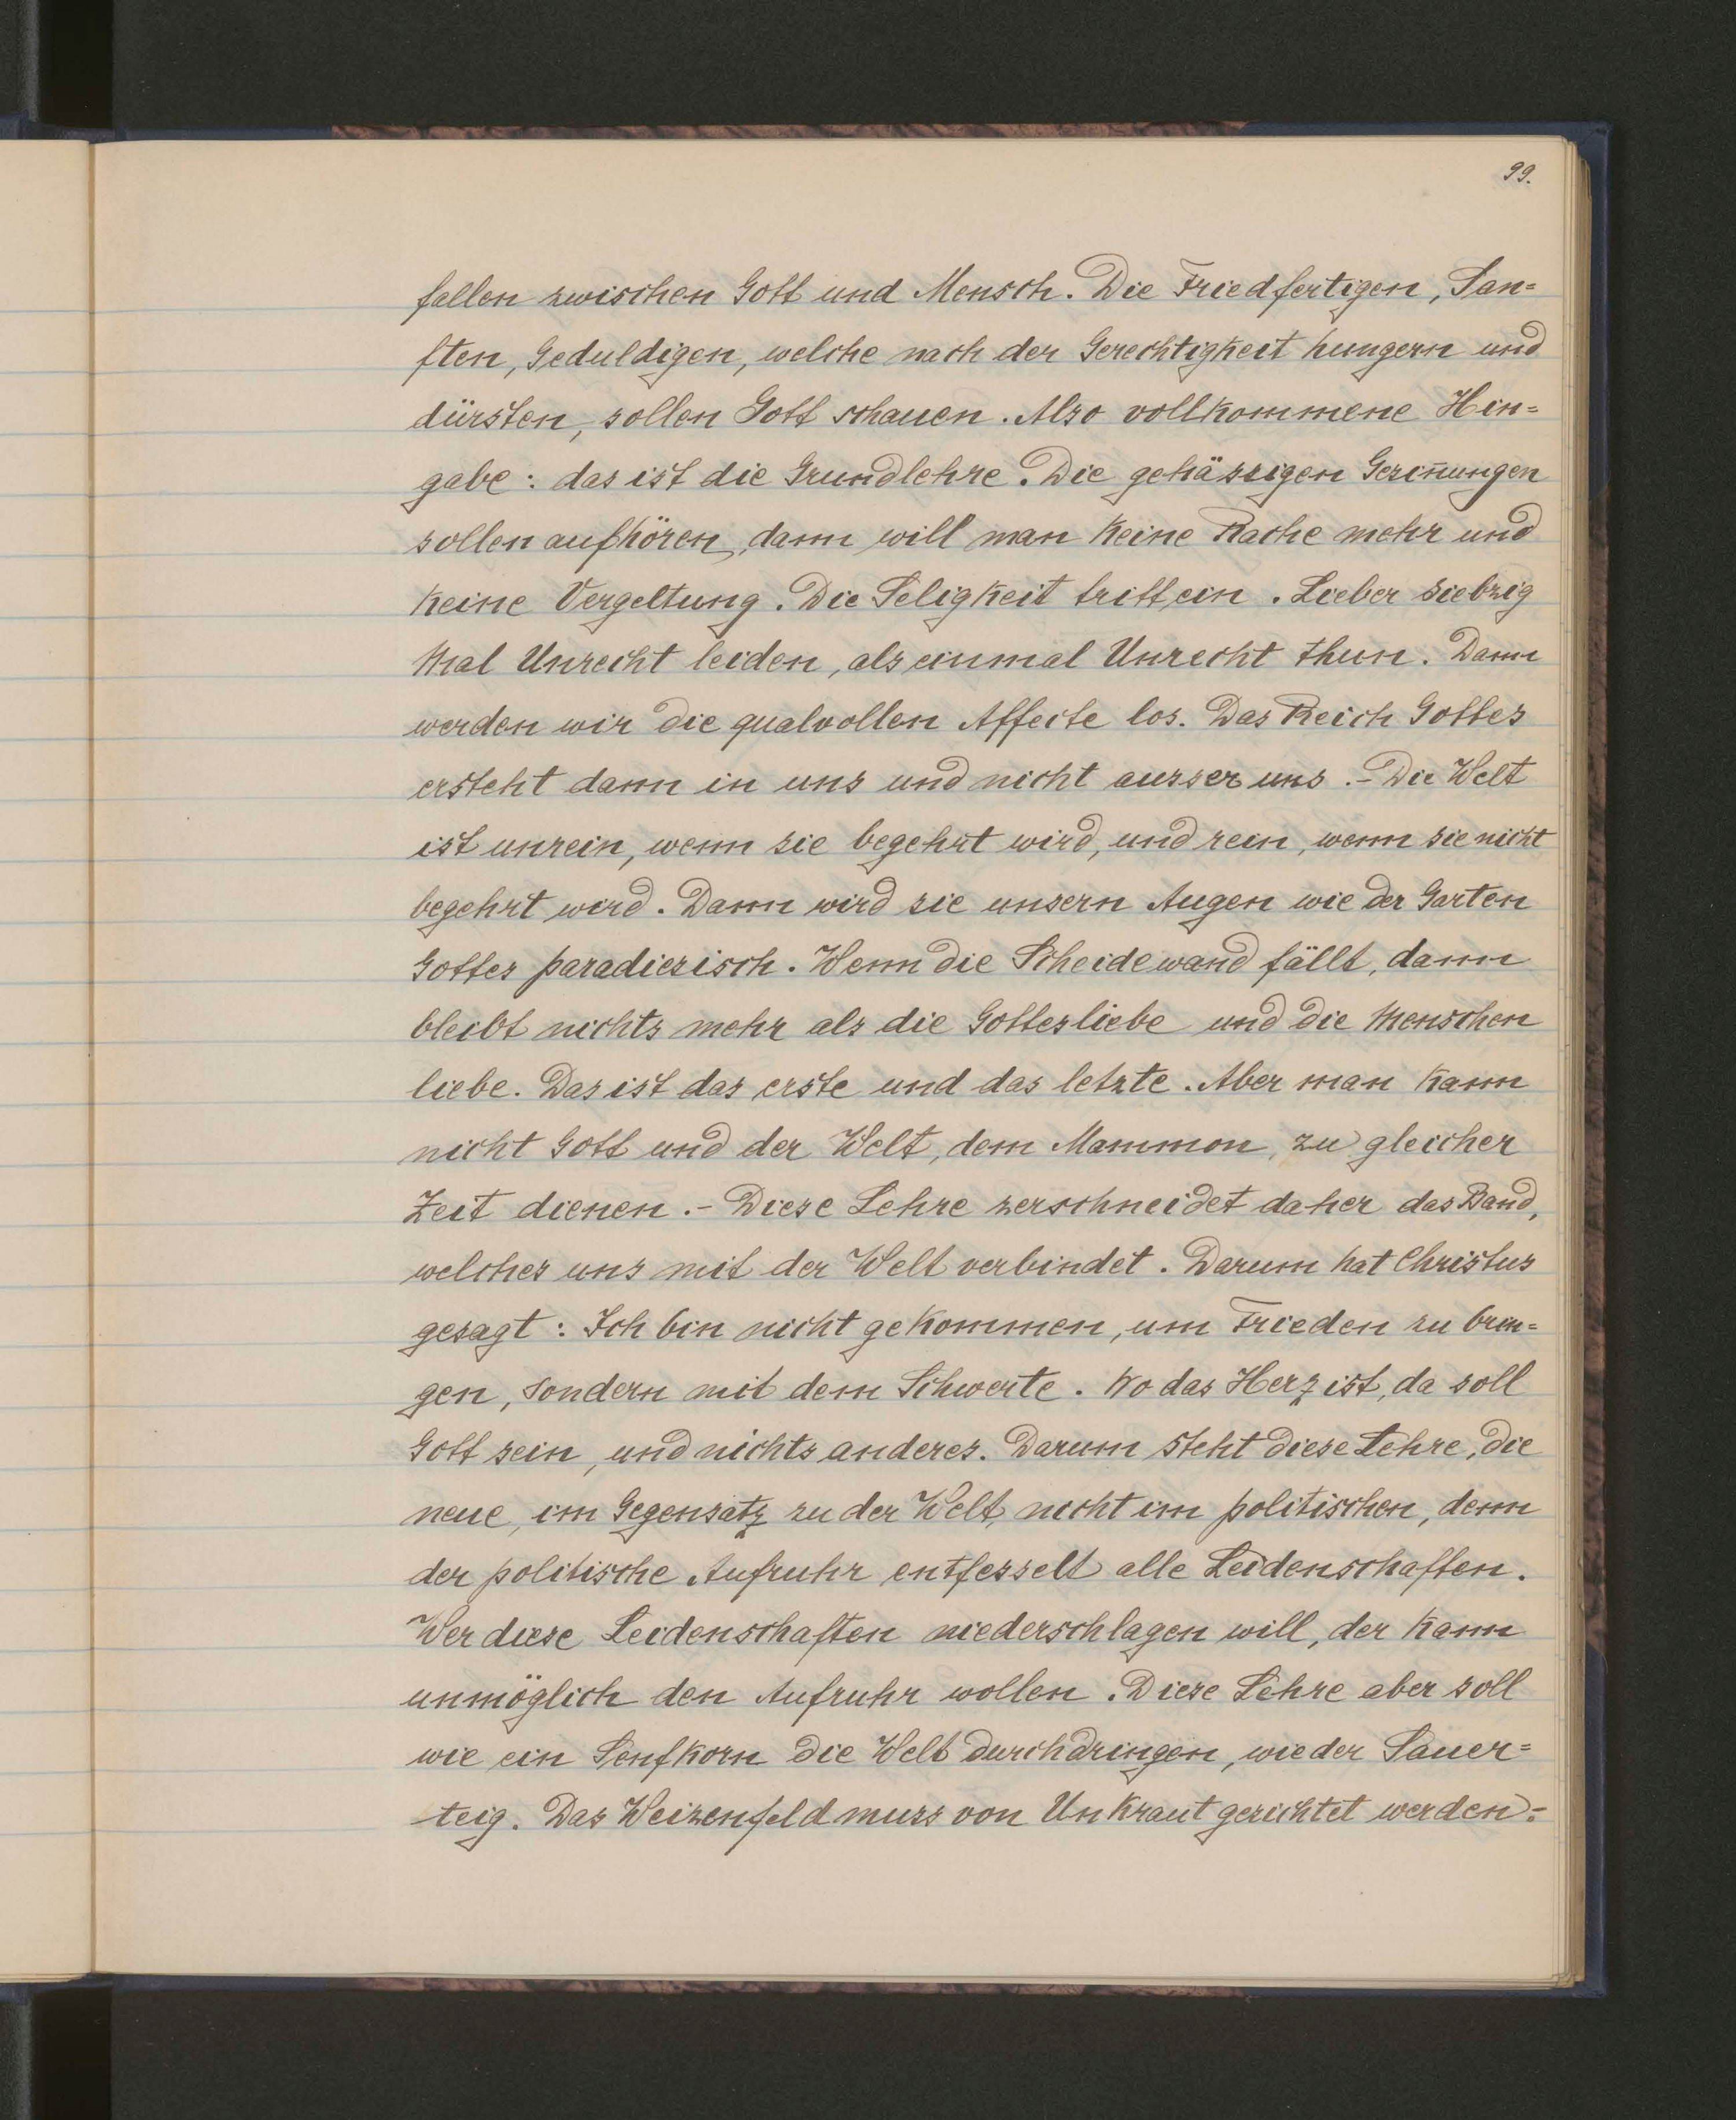 99.
fallen zwischen Gott und Mensch. Die Friedfertigen, San=
ften, Geduldigen, welche nach der Gerechtigkeit hungern und
dürsten, sollen Gott schauen. Also vollkommene Hin=
gabe: das ist die Grundlehre. Die gehässigen Gesin̄ungen
sollen aufhören, dann will man keine Rache mehr und
keine Vergeltung. Die Seligkeit tritt ein. Lieber siebzig
Mal Unrecht leiden, als einmal Unrecht thun. Dann
werden wir die qualvollen Affecte los. Das Reich Gottes
ersteht dann in uns und nicht ausser uns. - Die Welt
ist unrein, wenn sie begehrt wird, und rein, wenn sie nicht
begehrt wird. Dann wird sie unsern Augen wie der Garten
Gottes paradiesisch. Wenn die Scheidewand fällt, dann
bleibt nichts mehr als die Gottesliebe und die Menschen
liebe. Das ist das erste und das letzte. Aber man kann
nicht Gott und der Welt, dem Mammon, zu gleicher
Zeit dienen. - Diese Lehre zerschneidet daher das Band,
welches uns mit der Welt verbindet. Darum hat Christus
gesagt: Ich bin nicht gekommen, um Frieden zu brin=
gen, sondern mit dem Schwerte. Wo das Herz ist, da soll
Gott sein, und nichts anderes. Darum steht diese Lehre, die
neue, im Gegensatz zu der Welt, nicht im politischen, denn
der politische Aufruhr entfesselt alle Leidenschaften.
Wer diese Leidenschaften niederschlagen will, der kann
unmöglich den Aufruhr wollen. Diese Lehre aber soll
wie ein Senfkorn die Welt durchdringen, wie der Sauer=
teig. Das Weizenfeld muss von Unkraut gesichtet werden: